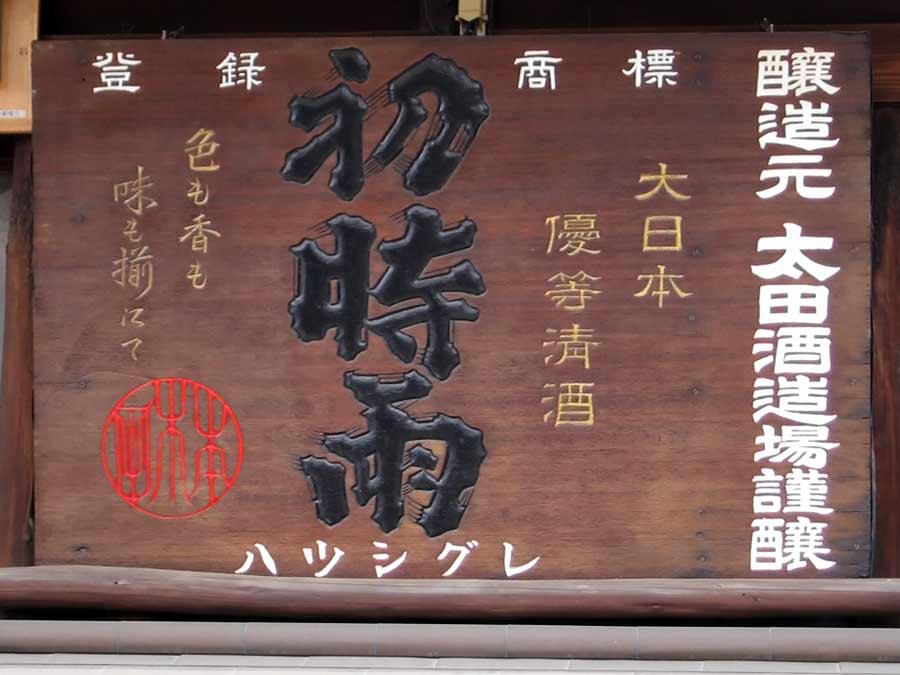 登録商標
醸造元 太田酒造場謹醸
大日本
優等清酒
初時雨
ハツシグレ
色も香も
味も揃にて